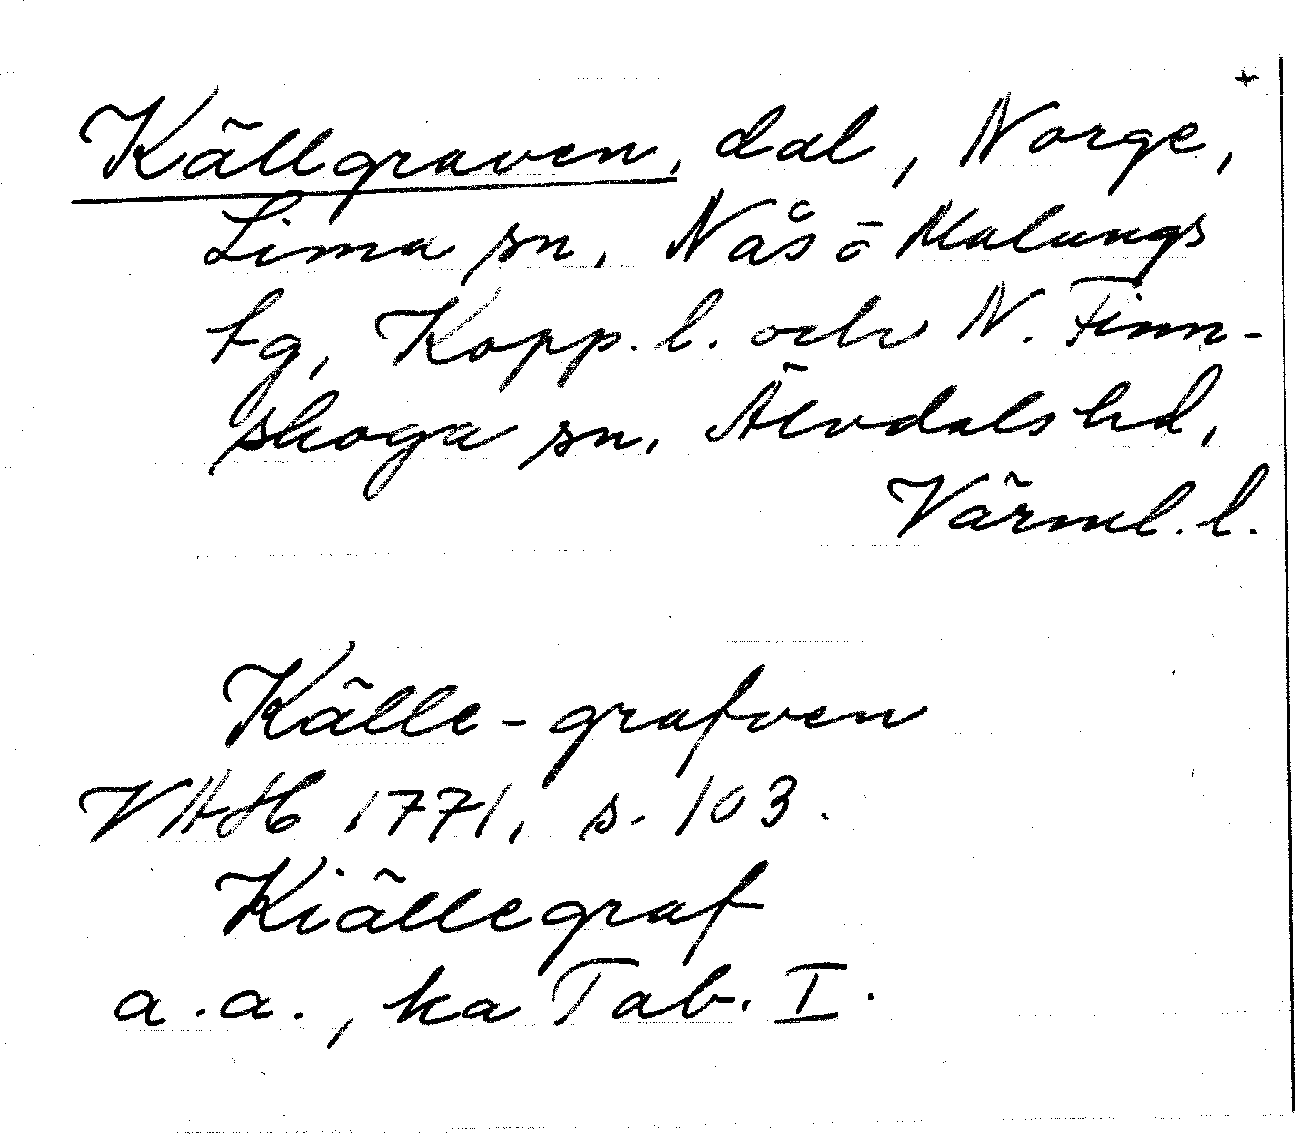 +
Källgraven, dal, Norge,
Lima sn, Nås o Malungs
tg, Kopp. l. och N. Finn-
skoga sn, Älvdals hd,
Värml. l.
Källe-grafven
VAH 1771, s. 103.
Kiällegraf
a.a., ka Tab. I.